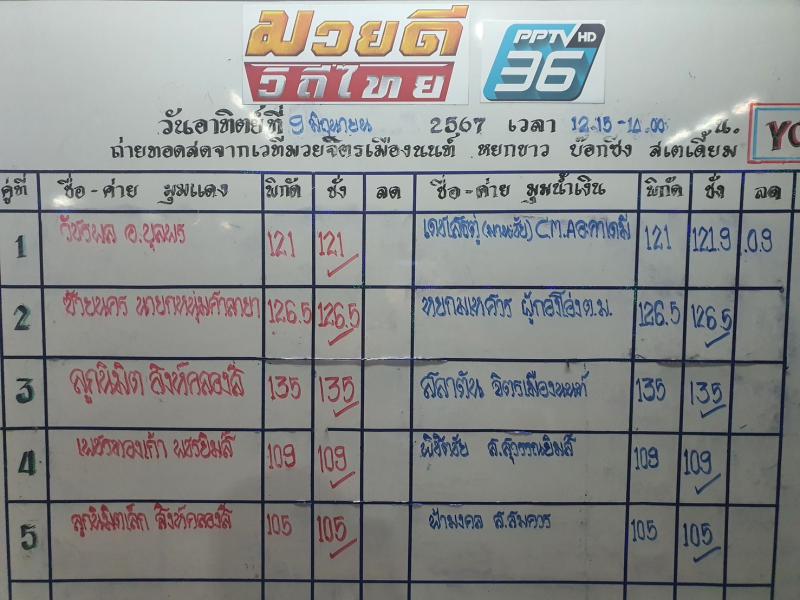 มวยดี
วิถีไทย
PPTV HD
36
วันอาทิตย์ที่ 9 มิถุนายน 2567 เวลา 12.15-14.00 น.
ถ่ายทอดสดจากเวทีมวยจิตรเมืองนนท์ หยกขาว บ๊อกซิ่ง สเตเดี้ยม
YO
คู่ที่ ชื่อ-ค่าย มุมแดง พิกัด ชั่ง ลด ชื่อ-ค่าย มุมน้ำเงิน พิกัด ชั่ง ลด
1 วัชรพล อ.บุลพร 121 121 C.M.Aอะคาเดมี่ 121 121.9 0.9
2 ชัยนคร นายกหนุ่มศาลายา 126.5 126.5 หยกมหศวร ผู้กองโอ๋งต.ม. 126.5 126.5
3 ลูกนิมิต สิงห์คลองสี่ 135 135 สลาตัน จิตรเมืองนนท์ 135 135
4 เพชรทองเก้า พชรยิมส์ 109 109 พิชิตชัย ส.สุวรรณยิมส์ 109 109
5 ลูกนิมิตเล็ก สิงห์คลองสี่ 105 105 ฟ้ามงคล ส.สมควร 105 105